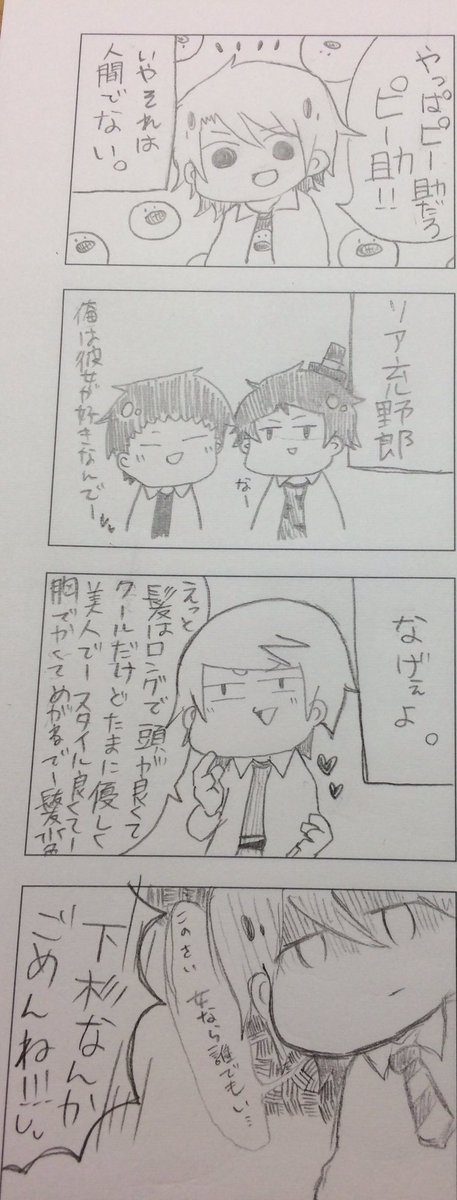 やっぱピー助だろ
ピー助!!
いやそれは
人間でない。
リア充野郎
なー
俺は彼女が好きなんでー
なげぇよ。
えっと
髪はロングで頭が良くて
クールだけどたまに優しく
美人でースタイル良くてー
胸でかくてめがねでー髪
このさい
女なら誰でもい…
下杉なんか
ごめんね!!!